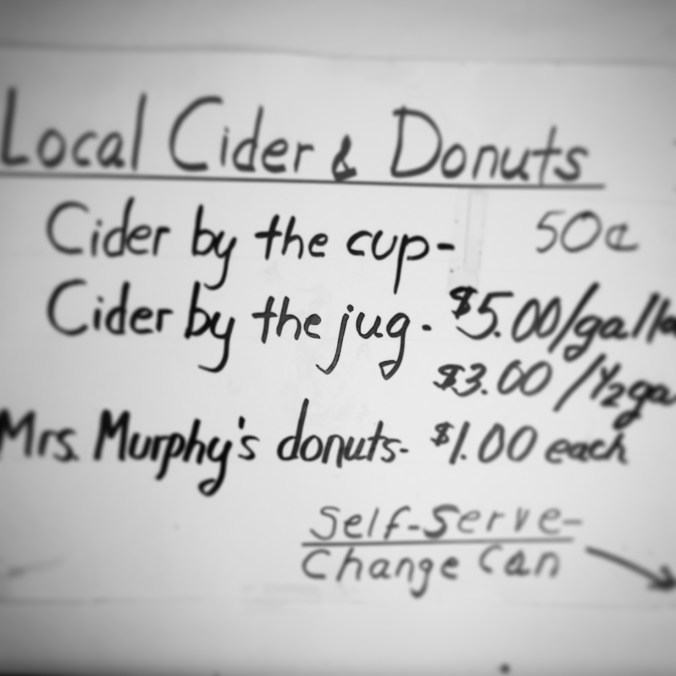 Local Cider & Donuts
Cider by the cup- 50¢
Cider by the jug. $5.00/gallo
$3.00 / ½ ga
Mrs. Murphy's donuts- $1.00 each
Self-Serve-
Change Can